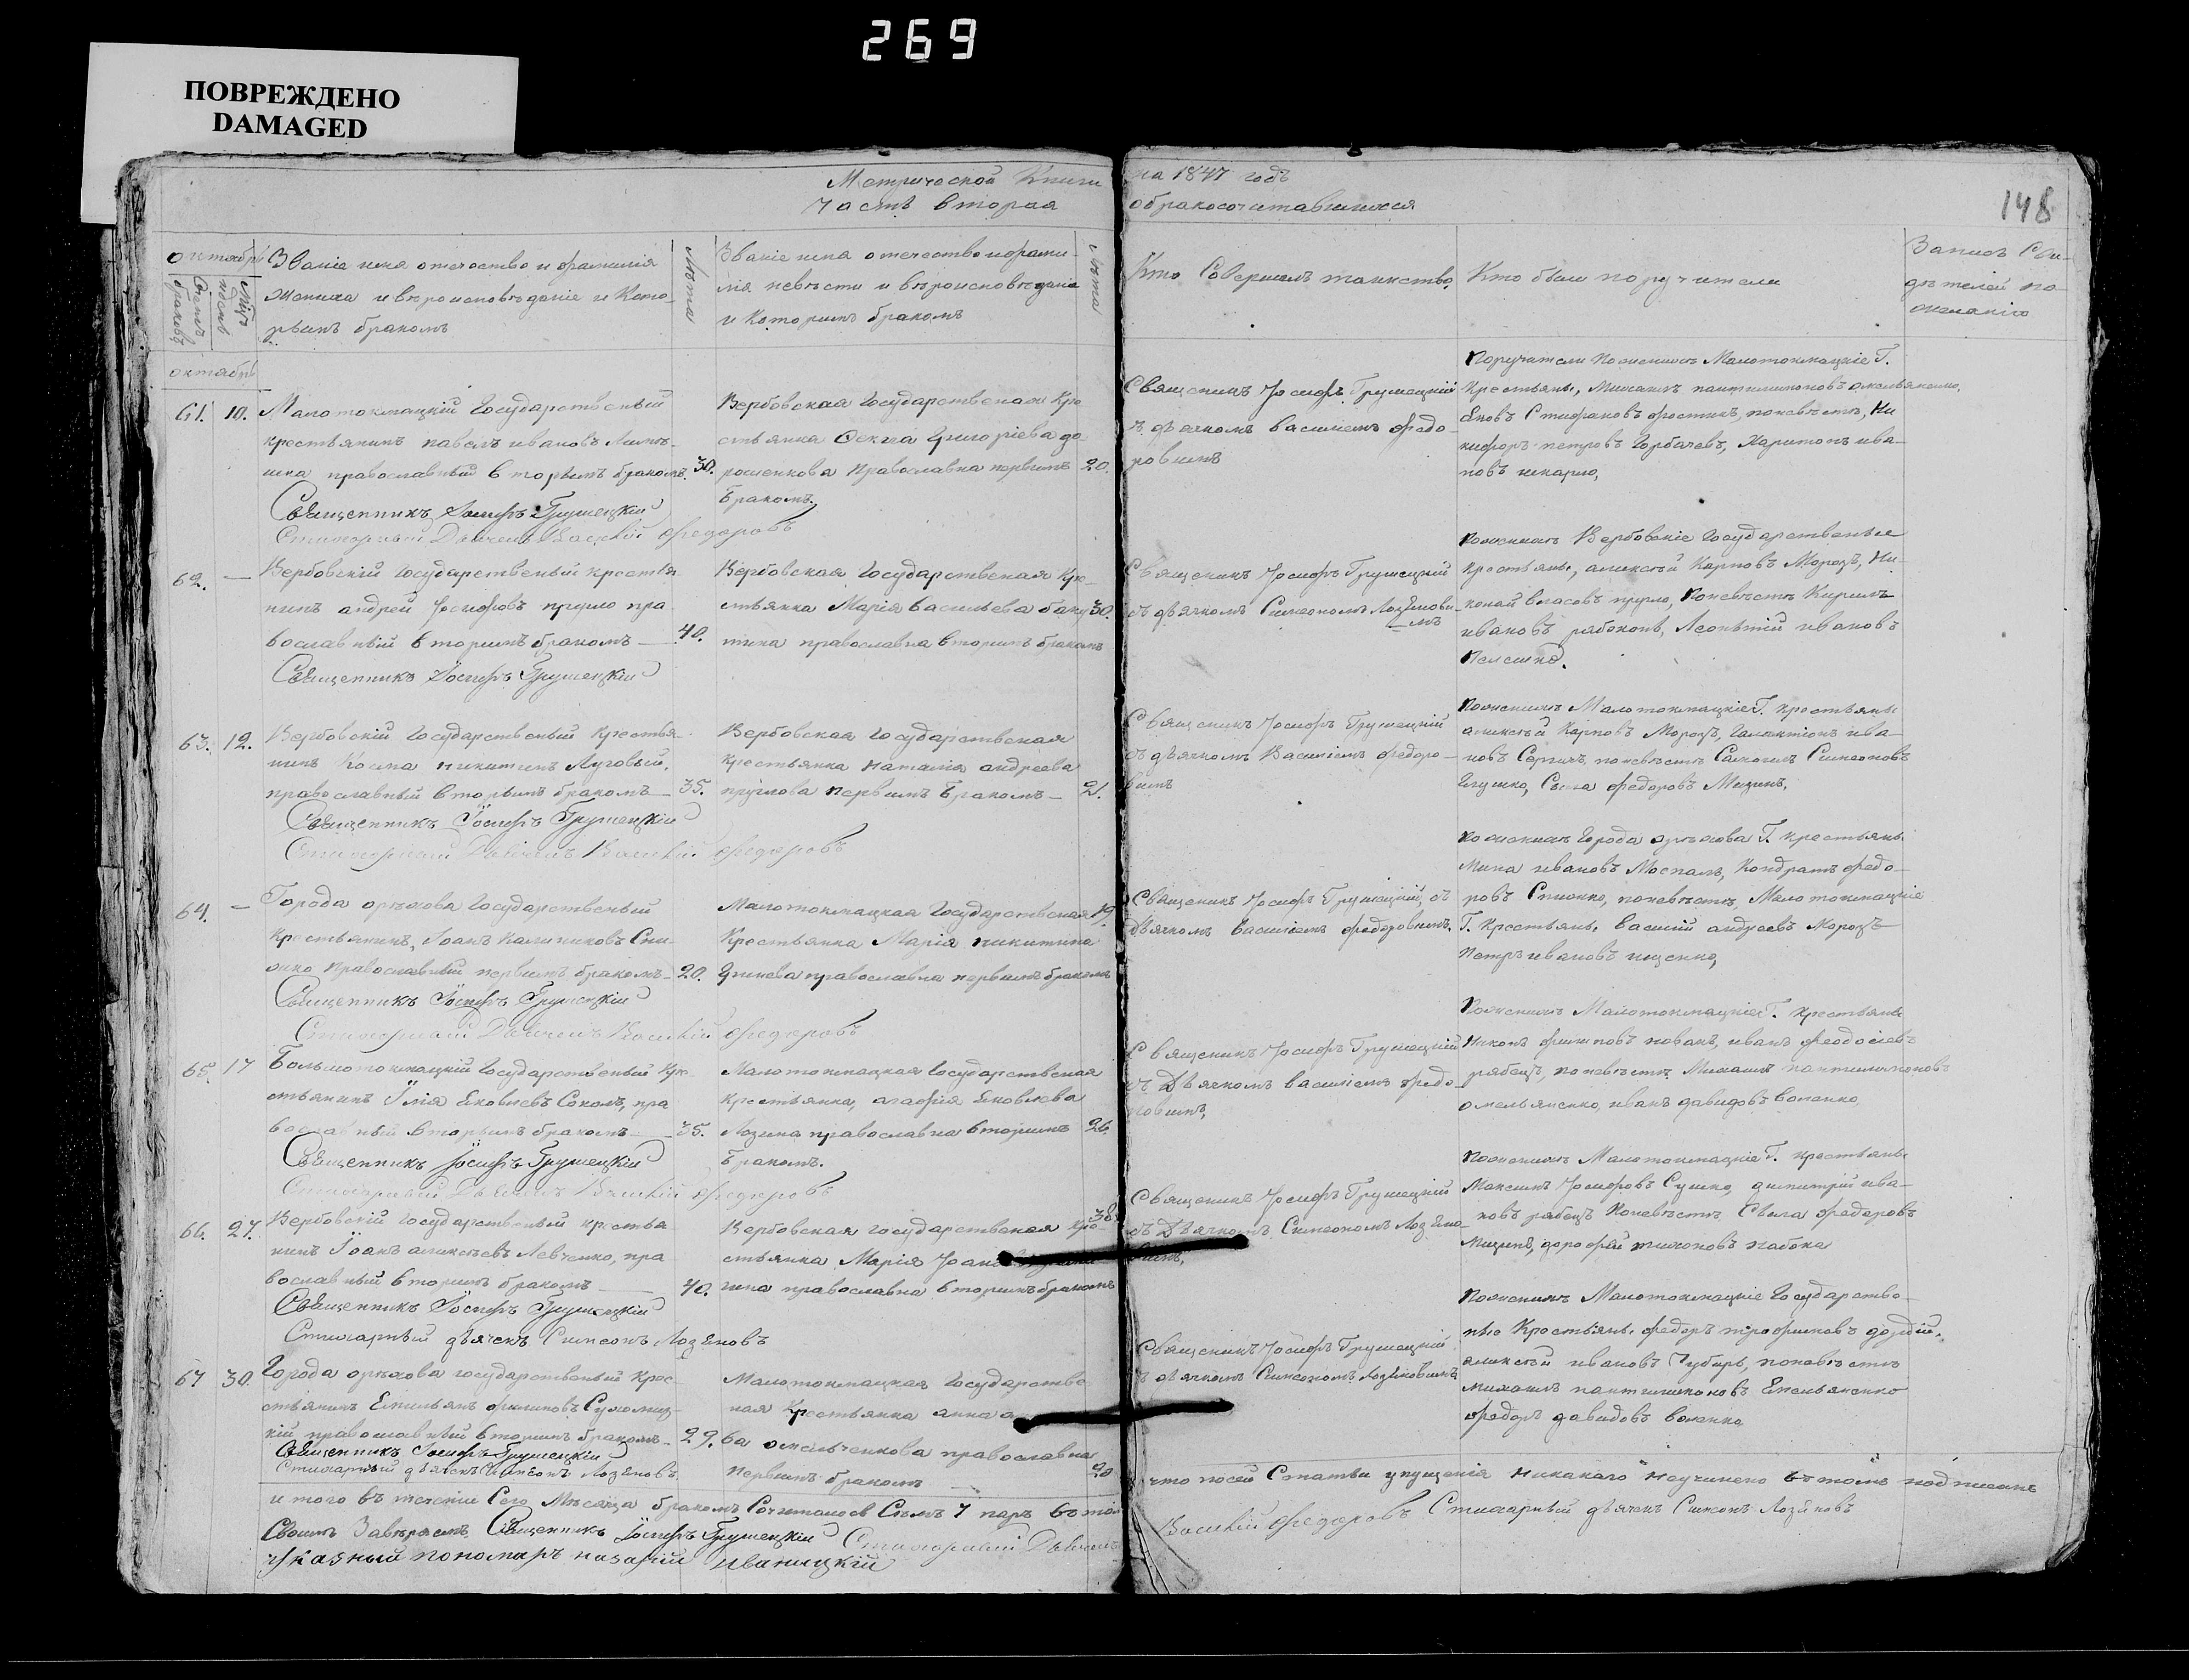 269
ПОВРЕЖДЕНО
DAMAGED
148
Метрической Книги на 1847 годъ
часть вторая о бракосочитавшихся
октябрь
Счетъ браковъ
Званіе имя отечество и фамилія
жениха и вѣроисповѣданіе и Кото-
рымъ бракомъ
Лѣта
Званіе имя отечество и фами-
лія невѣсти и вѣроисповѣданіе
и Которимъ бракомъ
Лѣта
Кто Совершалъ таинство
Кто были поручители
Запись Сви-
дѣтелей по
желанію
октябрь
61. 10. Малотокмацкій Государственый
крестьянинъ павелъ ивановъ
православный вторымъ бракомъ. 30.
Священникъ Іосифъ Грушецкій
Стихарный Дьячекъ Василій Федоровъ
Вербовская Государственая Кре
стьянка Григоріева до
рошенкова Православна первымъ 20.
бракомъ.
Священикъ Іосифъ Грушецкій
ъ дьячкомъ василіемъ федо-
ровимъ
Поручители По женихъ Малотокмацкіе Г.
Крестьяне, Михаилъ пантилимоновъ омельяненко,
Яковъ Стифановъ понѣвестѣ, Ни
кифоръ петровъ Горбачевъ, Харитонъ ива-
новъ
62. — Вербовскій Государственый крестья
нинъ андрей Іосифовъ пругло пра
вославный вторимъ бракомъ — 40.
Священникъ Іосифъ Грушецкій
Вербовская Государственая Кре-
стьянка Марія васильева 30.
православна вторимъ бракомъ
Священикъ Іосифъ Грушецкій
съ дьячкомъ Симеономъ Лозянови
мъ
По женихъ Вербовскіе Государственые
Крестьяне, аликсѣй Карповъ Морозъ, Ни-
колай власовъ пругло, Поневѣсте Кирилъ
ивановъ рябоконь, Леонтій ивановъ
63. 12. Вербовскій Государственый Крестья-
нинъ Косма никитинъ Луговый,
православный вторымъ бракомъ — 35.
Священникъ Іосифъ Грушецкій
Стихарный Дьячекъ Василій Федоровъ
Вербовская Государственая
Крестьянка наталія андреева
пруглова первимъ бракомъ — 21.
Священикъ Іосифъ Грушецкій
съ дьячкомъ Василіемъ федоро-
вимъ
По женихъ Малотокмацкіе Г. крестьяне
аликсѣй Карповъ Морозъ, Галактіонъ ива-
новъ поневѣсте Самоилъ Симеоновъ
Глушко, федоровъ
64. — Города орѣхова Государственый
Крестьянинъ, Іоанъ Калиниковъ
Православный первимъ бракомъ — 20.
Священникъ Іосифъ Грушецкій
Стихарный Дьячекъ Василій Федоровъ
Малотокмацкая Государственая 19.
Крестьянка Марія никитина
православна первимъ бракомъ
Священикъ Іосифъ Грушецкій, съ
Дьячкомъ василіемъ федоровимъ.
По женихъ Города орѣхова Г. крестьяне
Мина ивановъ Москаль, Кондратъ федо-
ровъ поневѣсте, Мало токмацкіе
Г. Крестьяне. василій андреевъ Морозъ
Петръ ивановъ ищенко,
65. 17 Большотокмацкій Государственый Кре-
стьянинъ Ілія Яковлевъ Соколъ, пра
вославный вторимъ бракомъ — 35.
Священникъ Іосифъ Грушецкій
Стихарный Дьячекъ Василій Федоровъ
Малотокмацкая Государственая
крестьянка, агафія Яковлева
Лозина православна вторимъ 26.
бракомъ.
Священикъ Іосифъ Грушецкій
съ Дьячкомъ василіемъ федо-
ровимъ,
По женихъ Малотокмацкіе Г. Крестьяне
Никонъ филиповъ новакъ, иванъ феодосіевъ
рябецъ, поневѣсте Михаилъ пантилимоновъ
омельяненко, иванъ давидовъ
66. 27. Вербовскій Государственый крестья
нинъ Іоанъ аликсѣевъ Левченко, пра
вославный вторимъ бракомъ — 40.
Священникъ Іосифъ Грушецкій
Стихарный дьячекъ Симеонъ Лозяновъ
Вербовская Государственая Кре 38.
стьянка Марія Іоанова
православна вторимъ бракомъ
Священикъ Іосифъ Грушецкій
съ Дьячкомъ Симеономъ Лозяно
вимъ,
По женихъ Малотокмацкіе Г. крестьяне
Максимъ Іосифовъ Сушко, димитрій ива-
новъ рябецъ Поневѣсте, федоровъ
дорофей тихоновъ набока
67 30. Города орѣхова государственый Крес-
тьянинъ Емильянъ филиповъ
кій православный вторимъ бракомъ — 29.
Священникъ Іосифъ Грушецкій
Стихарный дьячекъ Симеонъ Лозяновъ
Малотокмацкая Государстве
ная Крестьянка анна
ва омельченкова православна
первимъ бракомъ 20
Священикъ Іосифъ Грушецкій
ъ дьячкомъ Симеономъ Лозяновимъ
По женихъ Малотокмацкіе Государстве-
ные Крестьяне. федоръ трофимовъ
аликсѣй ивановъ Чубарь, поневѣсте
михаилъ пантилимоновъ Емельяненко
федоръ давидовъ
и того въ теченіи Сего Мѣсяца бракомъ Сочиталось Семъ 7 паръ въ томъ что посей Статьи упущенія никакаго неучинено въ томъ подписомъ
Своимъ Завѣряемъ Священникъ Іосифъ Грушецкій Стихарный Дьячекъ Василій Федоровъ Стихарный дьячекъ Симеонъ Лозяновъ
указный пономарь назарій иваницкій